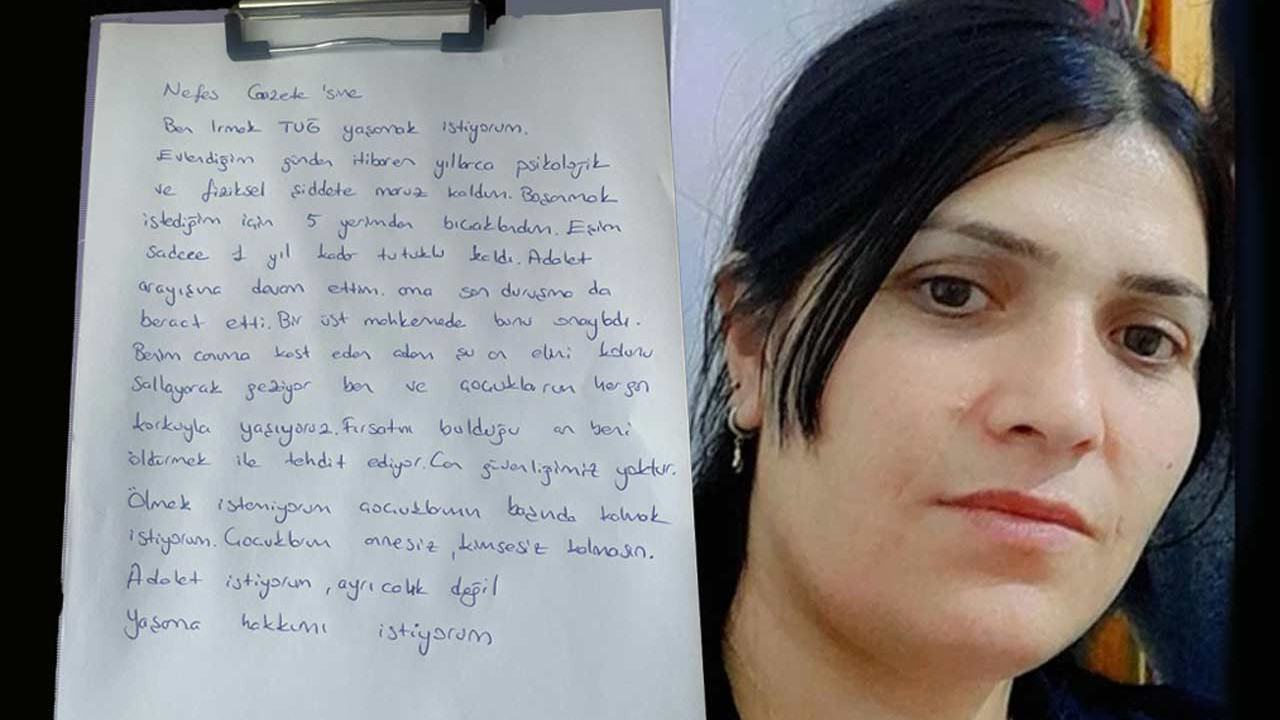 Nefes Gazete'sine
Ben Irmak TUĞ yaşamak istiyorum.
Evlendiğim günden itibaren yıllarca psikolojik
ve fiziksel şiddete maruz kaldım. Boşanmak
istediğim için 5 yerimden bıcaklandım. Eşim
sadece 1 yıl kadar tutuklu kaldı. Adalet
arayışına devam ettim. ama son duruşma da
beraat etti. Bir üst mahkemede bunu onayladı.
Benim canıma kast eden adam şu an elini kolunu
sallayarak geziyor ben ve çocuklarım hergün
korkuyla yaşıyoruz. Fırsatını bulduğu an beni
öldürmek ile tehdit ediyor. Can güvenliğimiz yoktur.
Ölmek istemiyorum çocuklarımın başında kalmak
istiyorum. Çocuklarım annesiz, kimsesiz kalmasın.
Adalet istiyorum, ayrıcalık değil
Yaşama hakkımı istiyorum